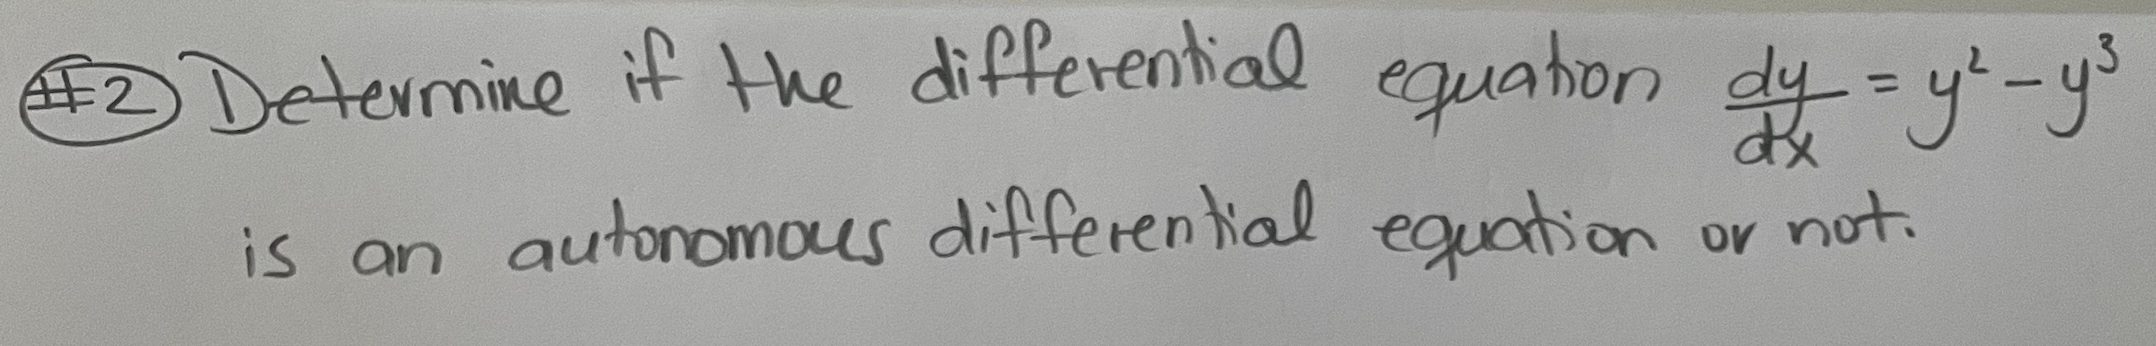 #2 Determine if the differential equation dy/dx = y² - y³
is an autonomous differential equation or not.